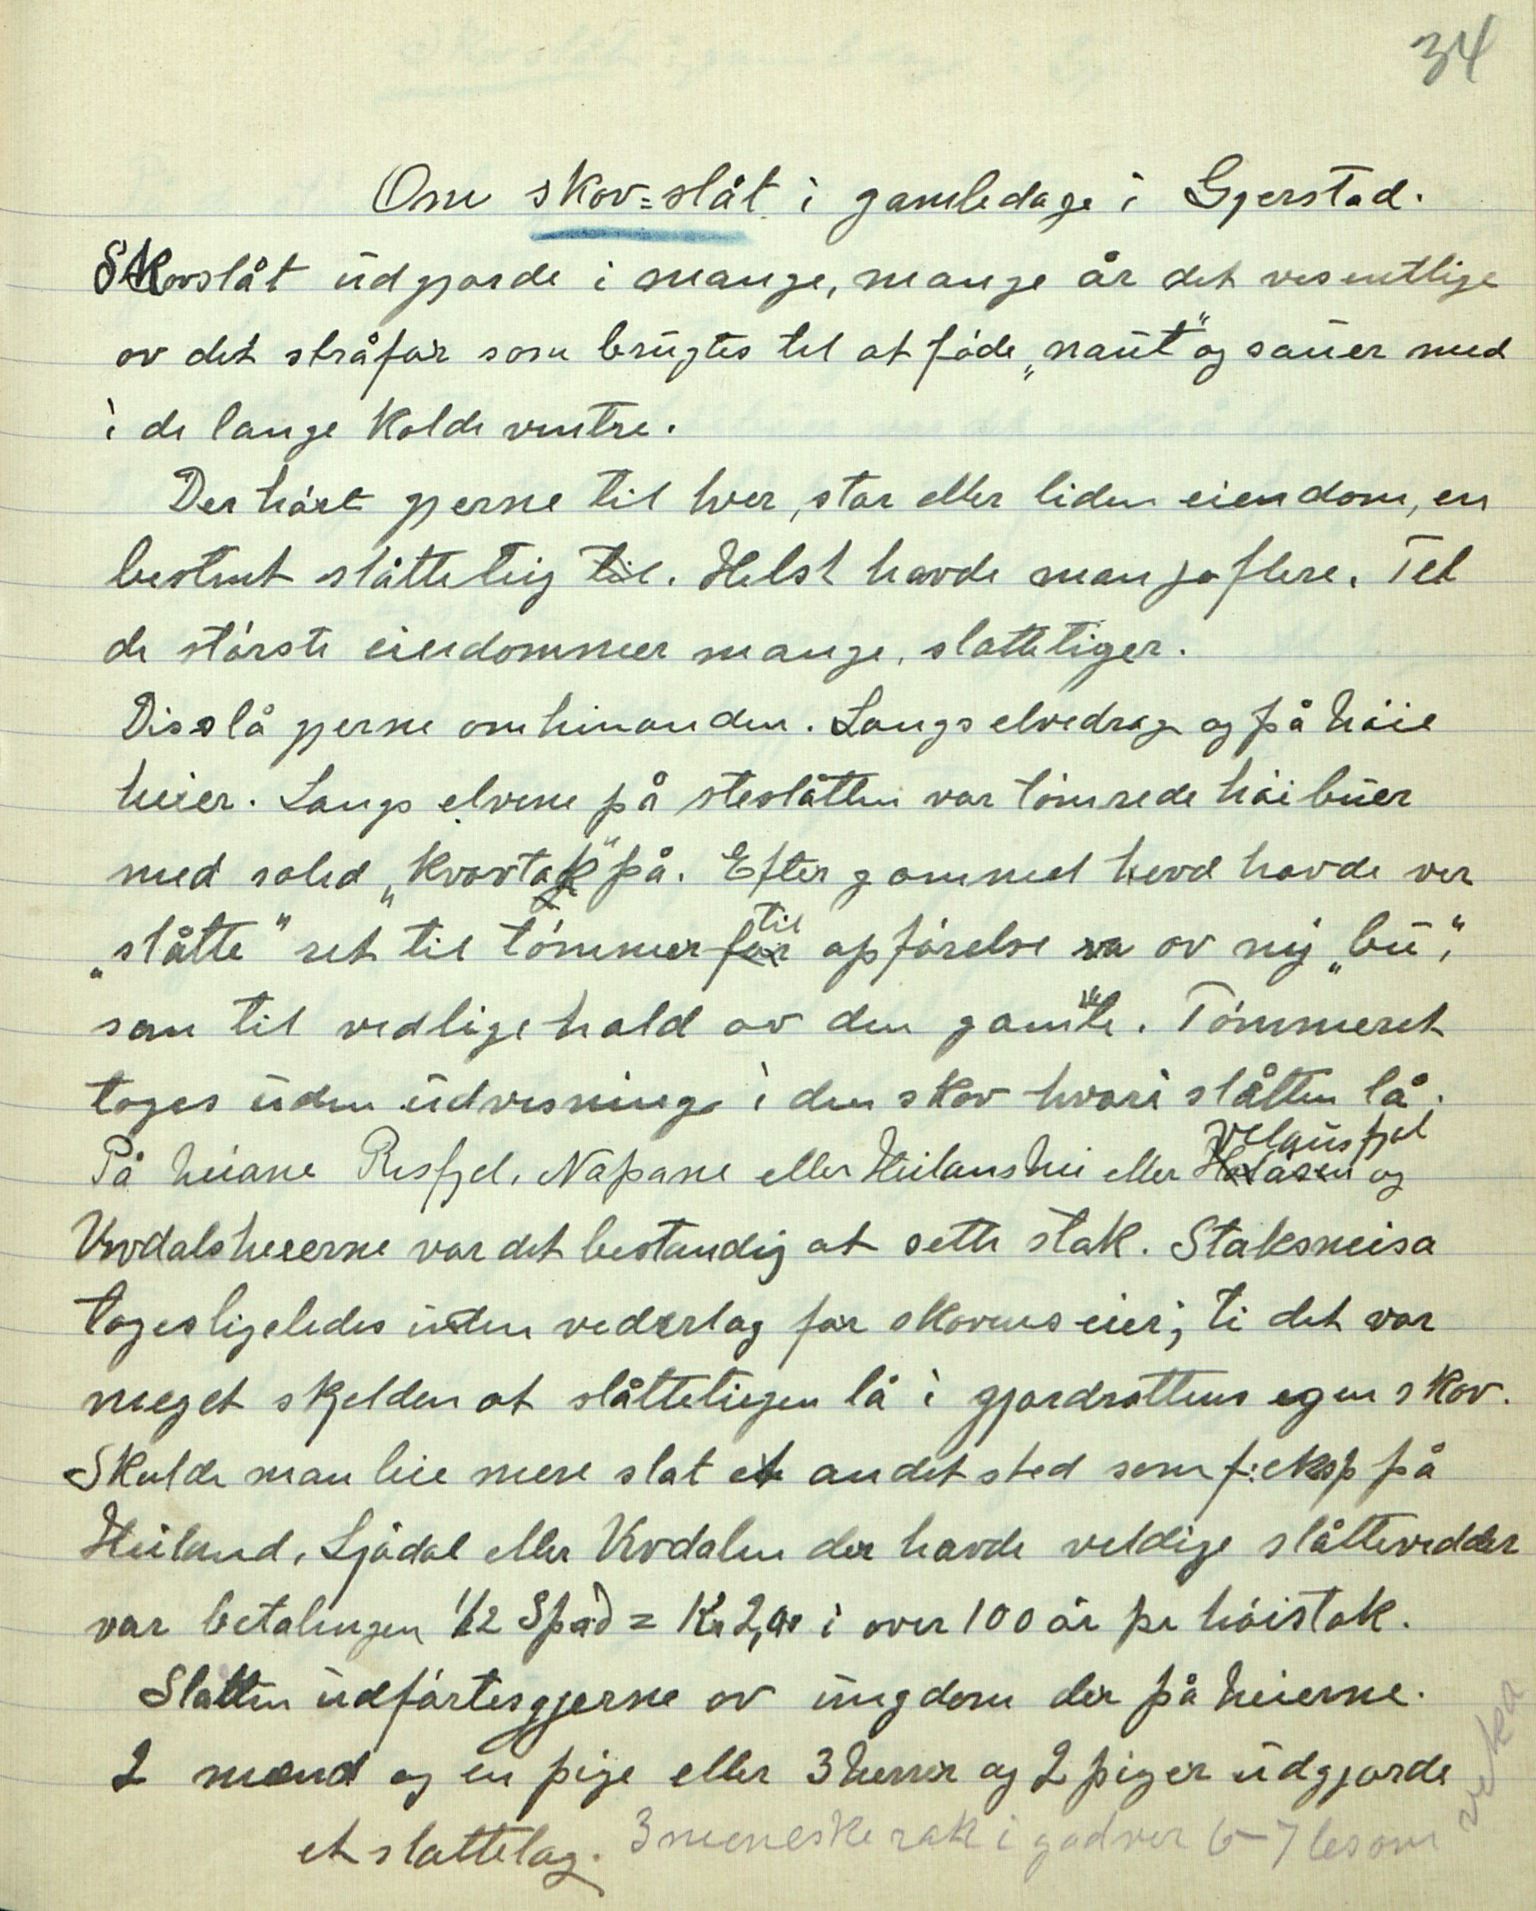 34
Om skov=slåt i gamledage i Gjerstad.
Skovslåt udgjorde i mange, mange år det vesentlige
ov det stråfor som brugtes til at føde „naut" og sauer med
i de lange kolde vintre.
Der hørt gjerne til hver, stor eller liden eiendom, en
bestemt slåtteteig til. Helst havde man jo flere. Til
de største eiendommer mange, slatteteiger.
Disse lå gjerne om hinanden. Langs elvedrag og på høie
heier. Langs elvene på sleslåtten var tømrede høibuer
med solid „kvortak" på. Efter gammel hevd havde ver
„slåtte" ret til tømmer for til opførelse ov ny „bu",
som til vedligehold ov den gamle. Tømmeret
toges uden udvisning i den skov hvori slåtten lå.
På heiane Resfjel, Napane eller Heilanshei eller Velausfjel og
Urvdalsheierne var det bestandig at sette stak. Staksneisa
toges ligeledes uden vederlag for skovens eier; ti det var
meget skjelden at slåtteteigen lå i gjordrottens egen skov.
Skulde man leie mere slat et andet sted som f: eksp på
Heiland, Ljødal eller Urvdalen der havde veldige slåttevidder
var betalingen 1/2 Spåd = Kr 2,00 i over 100 år pr høistak.
Slåtten udførtes gjerne ov ungdom der på heierne.
2 mænd og en pige eller 3 herrer og 2 piger udgjorde
et slattelag. 3 meneske rak i godver 6-7 les om
veka